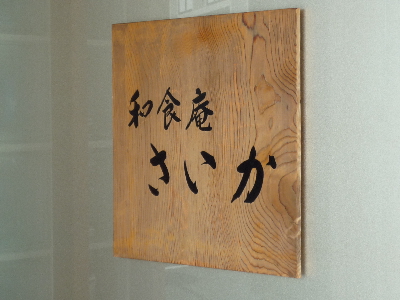 和食庵
さいか